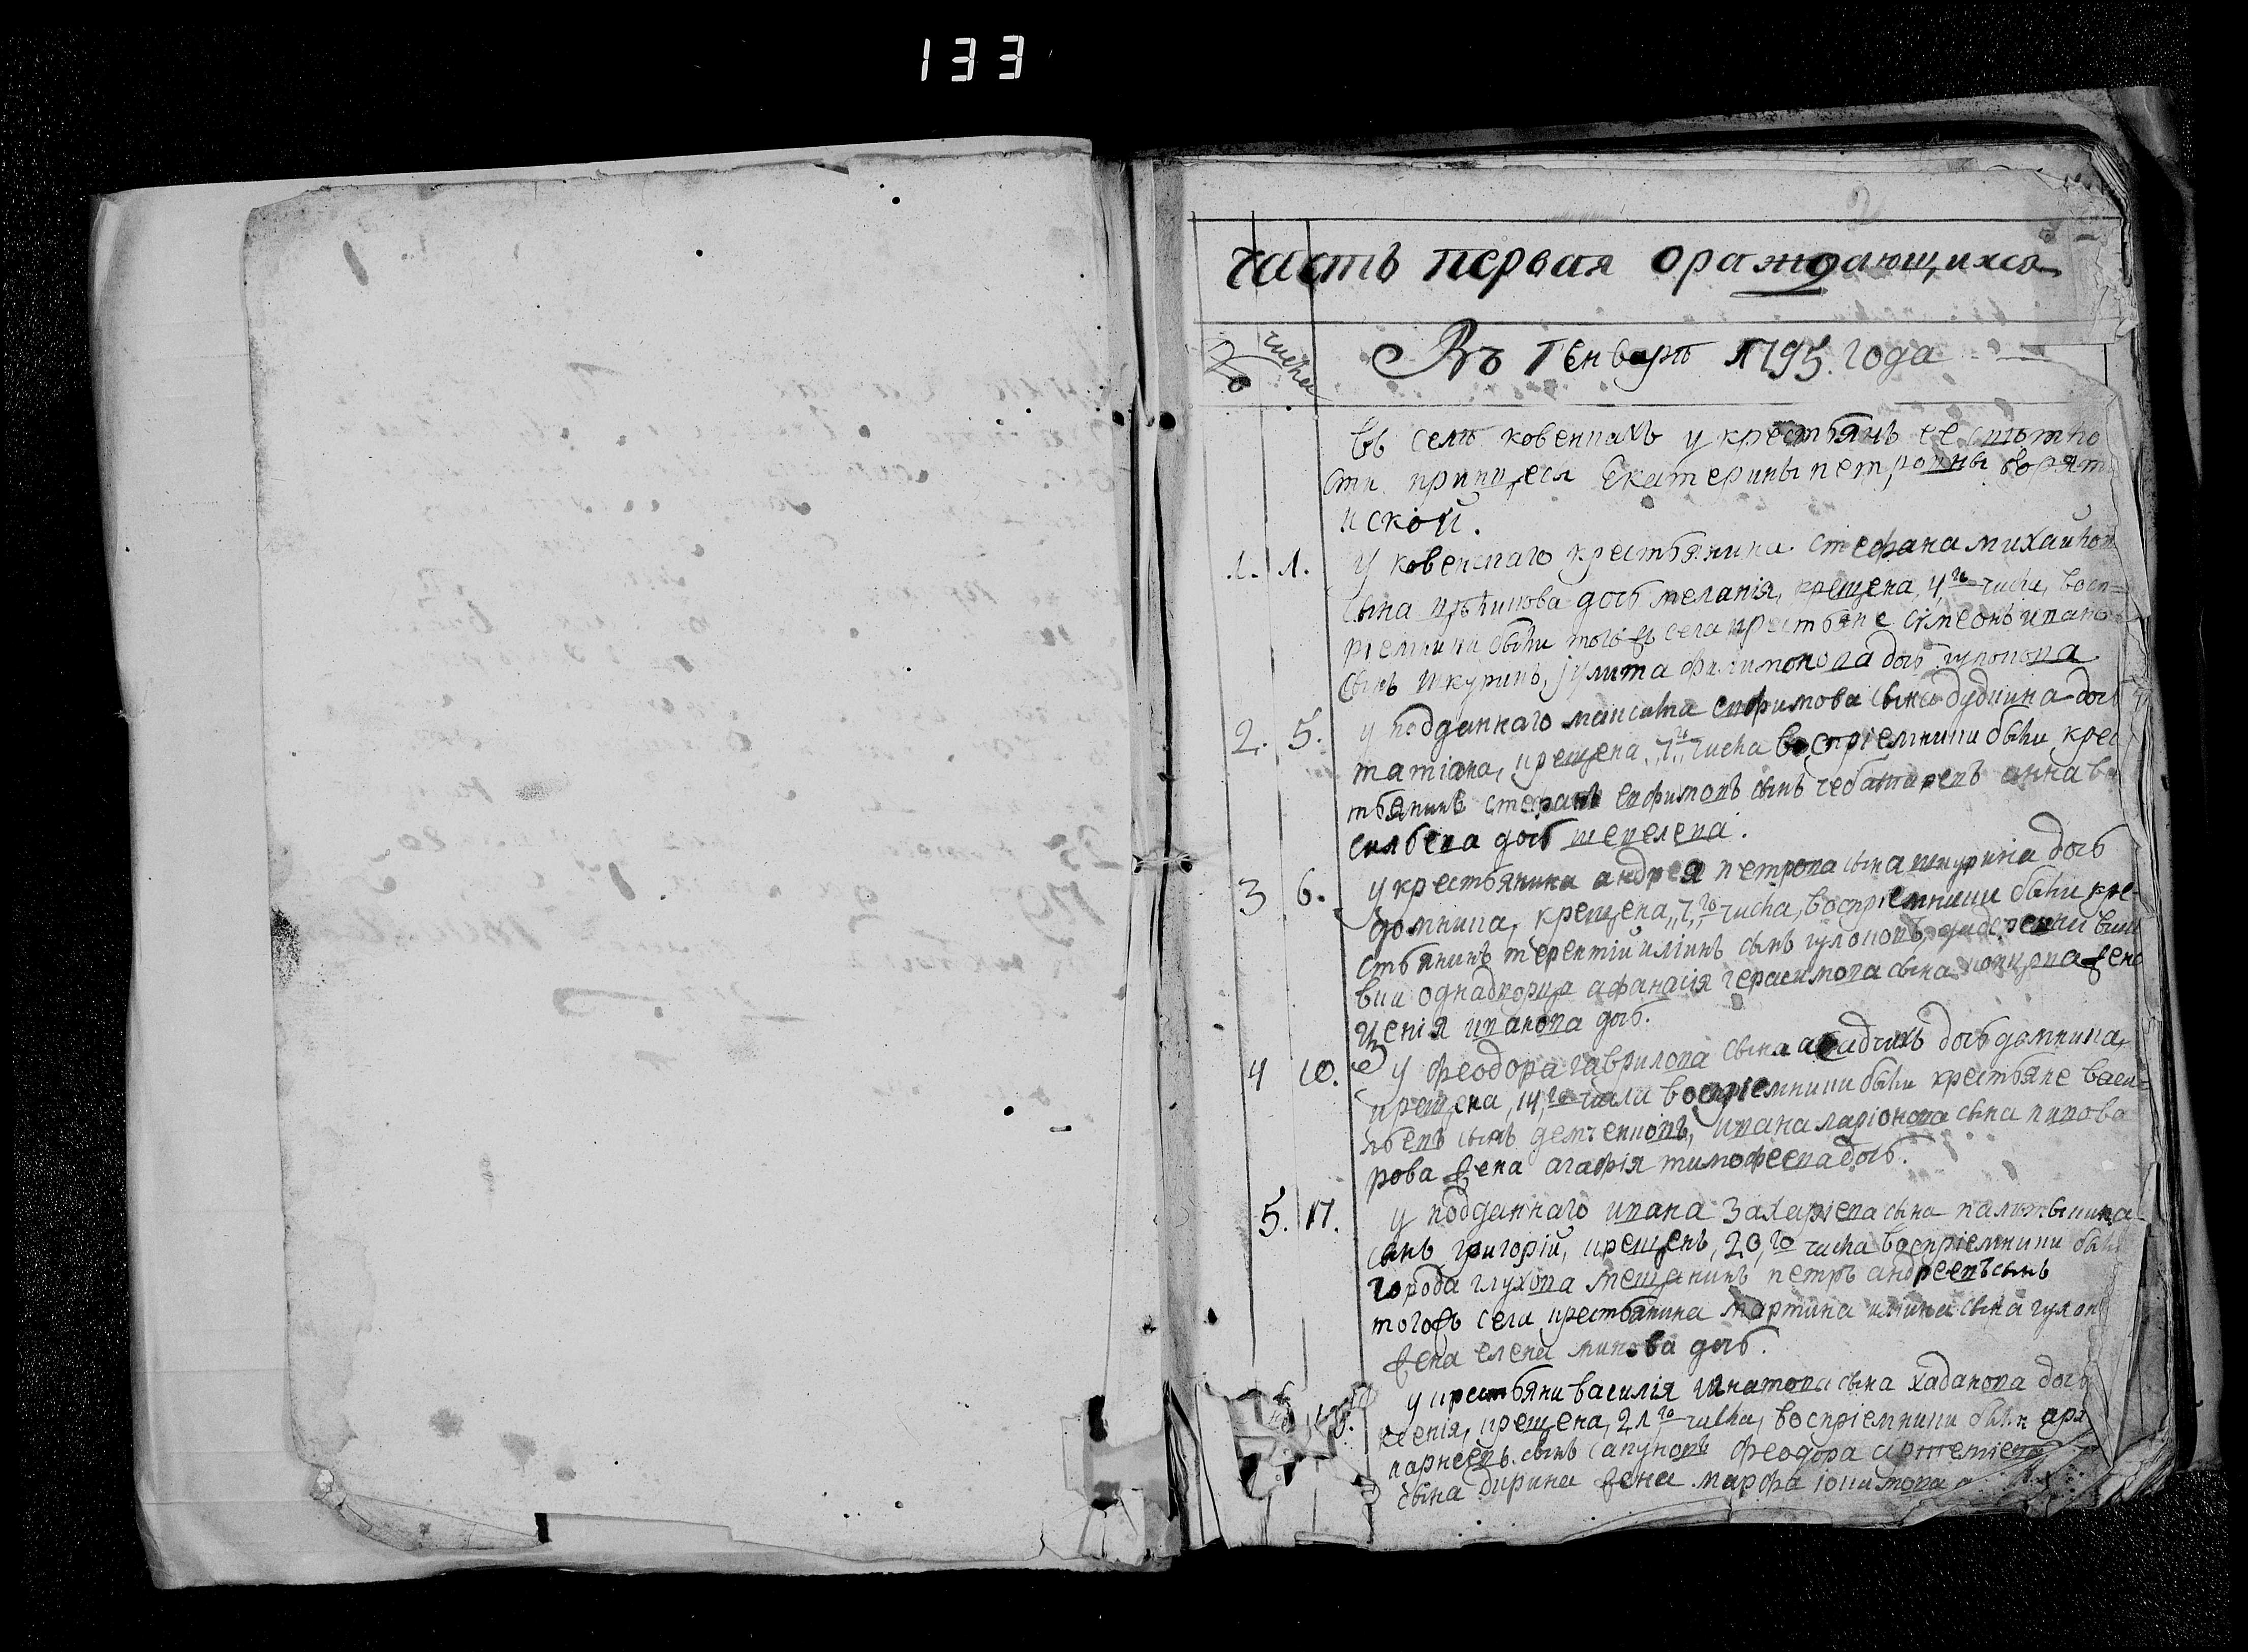 133
2
часть первая о раждающихся
№ числа
Въ Генварѣ 1795. года
въ селѣ ковенкахъ у крестьянъ ее свѣтло
сти принцеси Екатерины петровны борят
иской.
1. 1. у ковенскаго крестьянина стефана михайлов
сына дочь меланія, крещена, 4го числа, восп=
ріемники были тогожъ села крестьяне симеонъ ивано
сынъ шкуринъ, јулита филимонова дочь гулокова
2. 5. у подданнаго максима ефимова сына дудкина дочь
татіана, крещена, 7го числа воспріемники были крес
тьянинъ стефанъ ефимовъ сынъ чеботаревъ анна ва
сильева дочь шевелева.
3 6. у крестьянина андрея петрова сына шкурина дочь
домника, крещена, 7,го числа, воспріемники были кре
стьянинъ терентій илiинъ сынъ гулоковъ,
вни однадворца афанасія герасимова сына жена
ѯенія иванова дочь.
4 10. у феодора гаврилова сына дочь домника,
крещена, 14,го числа воспріемники были крестьяне васи=
льевъ сынъ демченковъ, ивана ларіонова сына пивова
рова жена агафія тимофеева дочь.
5. 17. у подданнаго ивана захаріева сына
сынъ григорій, крещенъ, 20,го числа воспріемники были
города глухова мещанинъ петръ андреевъ сынъ
тогожъ села крестьянина мартина илiина сына гулок
жена елена минова дочь.
у крестьянина василія игнатова сына хаданова дочь
ксенія, крещена, 21го числа, воспріемники были
карнеевъ сынъ сапуновъ феодора артеміева
сына дирина жена марфа